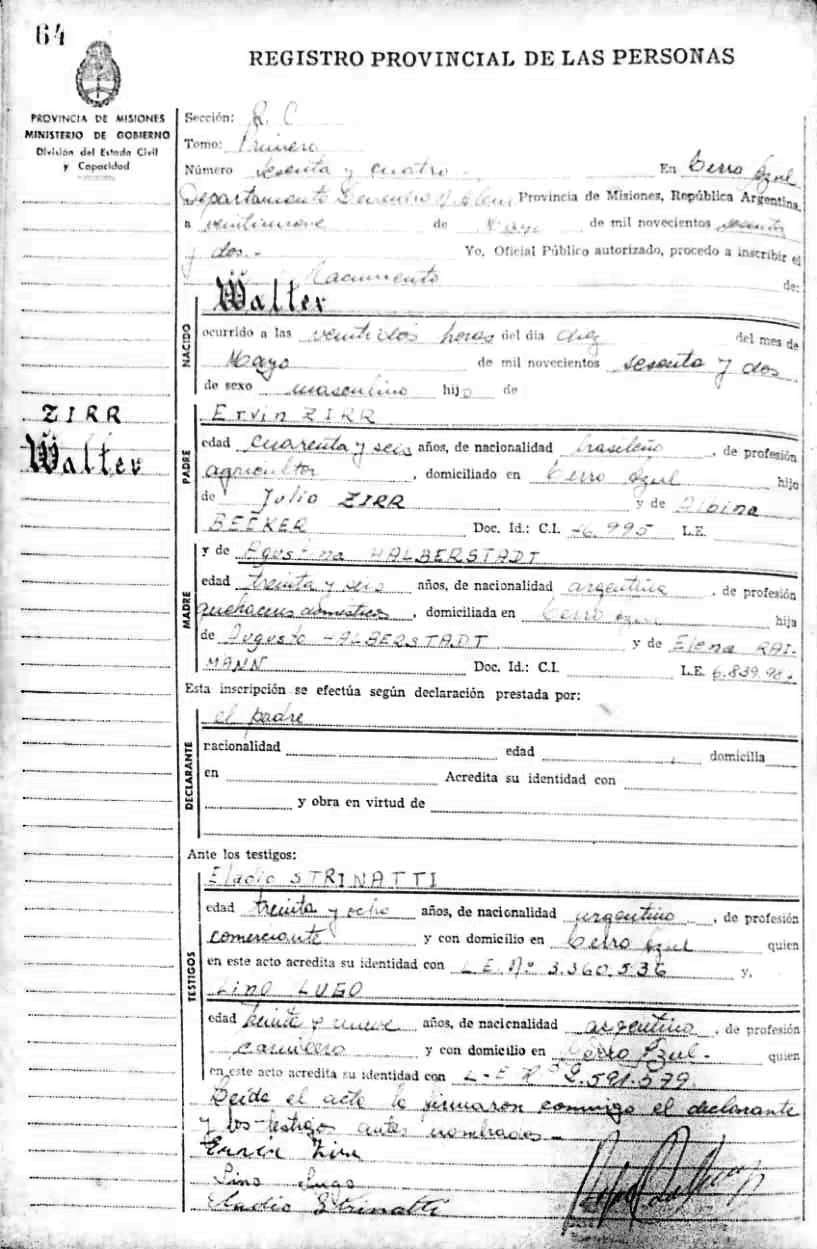 64
REGISTRO PROVINCIAL DE LAS PERSONAS
PROVINCIA DE MISIONES
MINISTERIO DE GOBIERNO
División del Estado Civil
y Capacidad
Sección: R. C
Tomo: Primero
Número sesenta y cuatro En Cerro Azul
Departamento Leandro N Alem Provincia de Misiones, República Argentina,
a veintinueve de Mayo de mil novecientos sesenta
y dos.- Yo, Oficial Público autorizado, procedo a inscribir el
Nacimiento de:
Walter
NACIDO
ocurrido a las veintidós horas del día diez del mes de
Mayo de mil novecientos sesenta y dos
de sexo masculino hijo de
ZIRR
Walter
Ervin ZIRR
PADRE
edad cuarenta y seis años, de nacionalidad brasileño, de profesión
agricultor, domiciliado en Cerro Azul hijo
de Julio ZIRR y de Albina
BEEKER Doc. Id.: C.I. 6.995 L.E.
y de Agustina HALBERSTADT
MADRE
edad treinta y seis años, de nacionalidad argentina, de profesión
quehaceres domésticos, domiciliada en Cerro Azul hija
de Augusto HALBERSTADT y de Elena RAI-
MANN Doc. Id.: C.I. L.E. 6.839.98
Esta inscripción se efectúa según declaración prestada por:
el padre
DECLARANTE
nacionalidad edad , domicilia
en Acredita su identidad con
y obra en virtud de
Ante los testigos:
Eladio STRINATTI
TESTIGOS
edad treinta y ocho años, de nacionalidad argentino, de profesión
comerciante y con domicilio en Cerro Azul quien
en este acto acredita su identidad con L.E. Nº 3.360.536 y,
Lino LUGO
edad treinta y nueve años, de nacionalidad argentino, de profesión
carnicero y con domicilio en Cerro Azul.- quien
en este acto acredita su identidad con L-E Nº 2.591.579.
Leída el acta la firmaron conmigo el declarante
y los testigos antes nombrados.-
Ervin Zirr
Lino Lugo
Eladio Strinatti